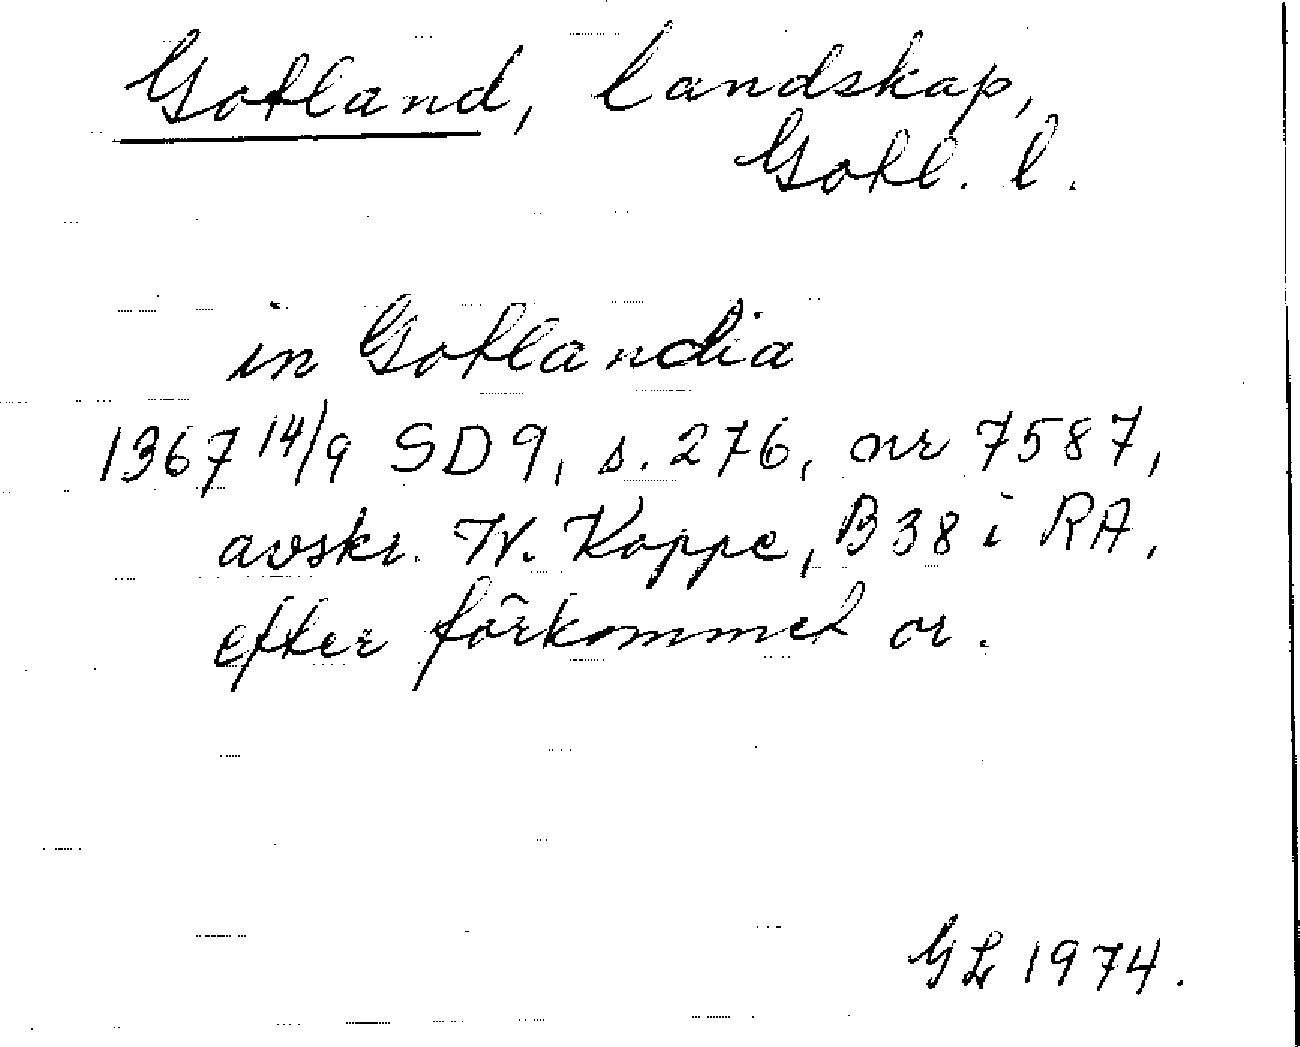 Gotland, landskap,
Gotl. l.
in Gotlandia
1367 14/9 SD9, s. 276, nr 7587,
avskr. W. Koppe, B38 i RA,
efter förkommet or.
GL 1974.